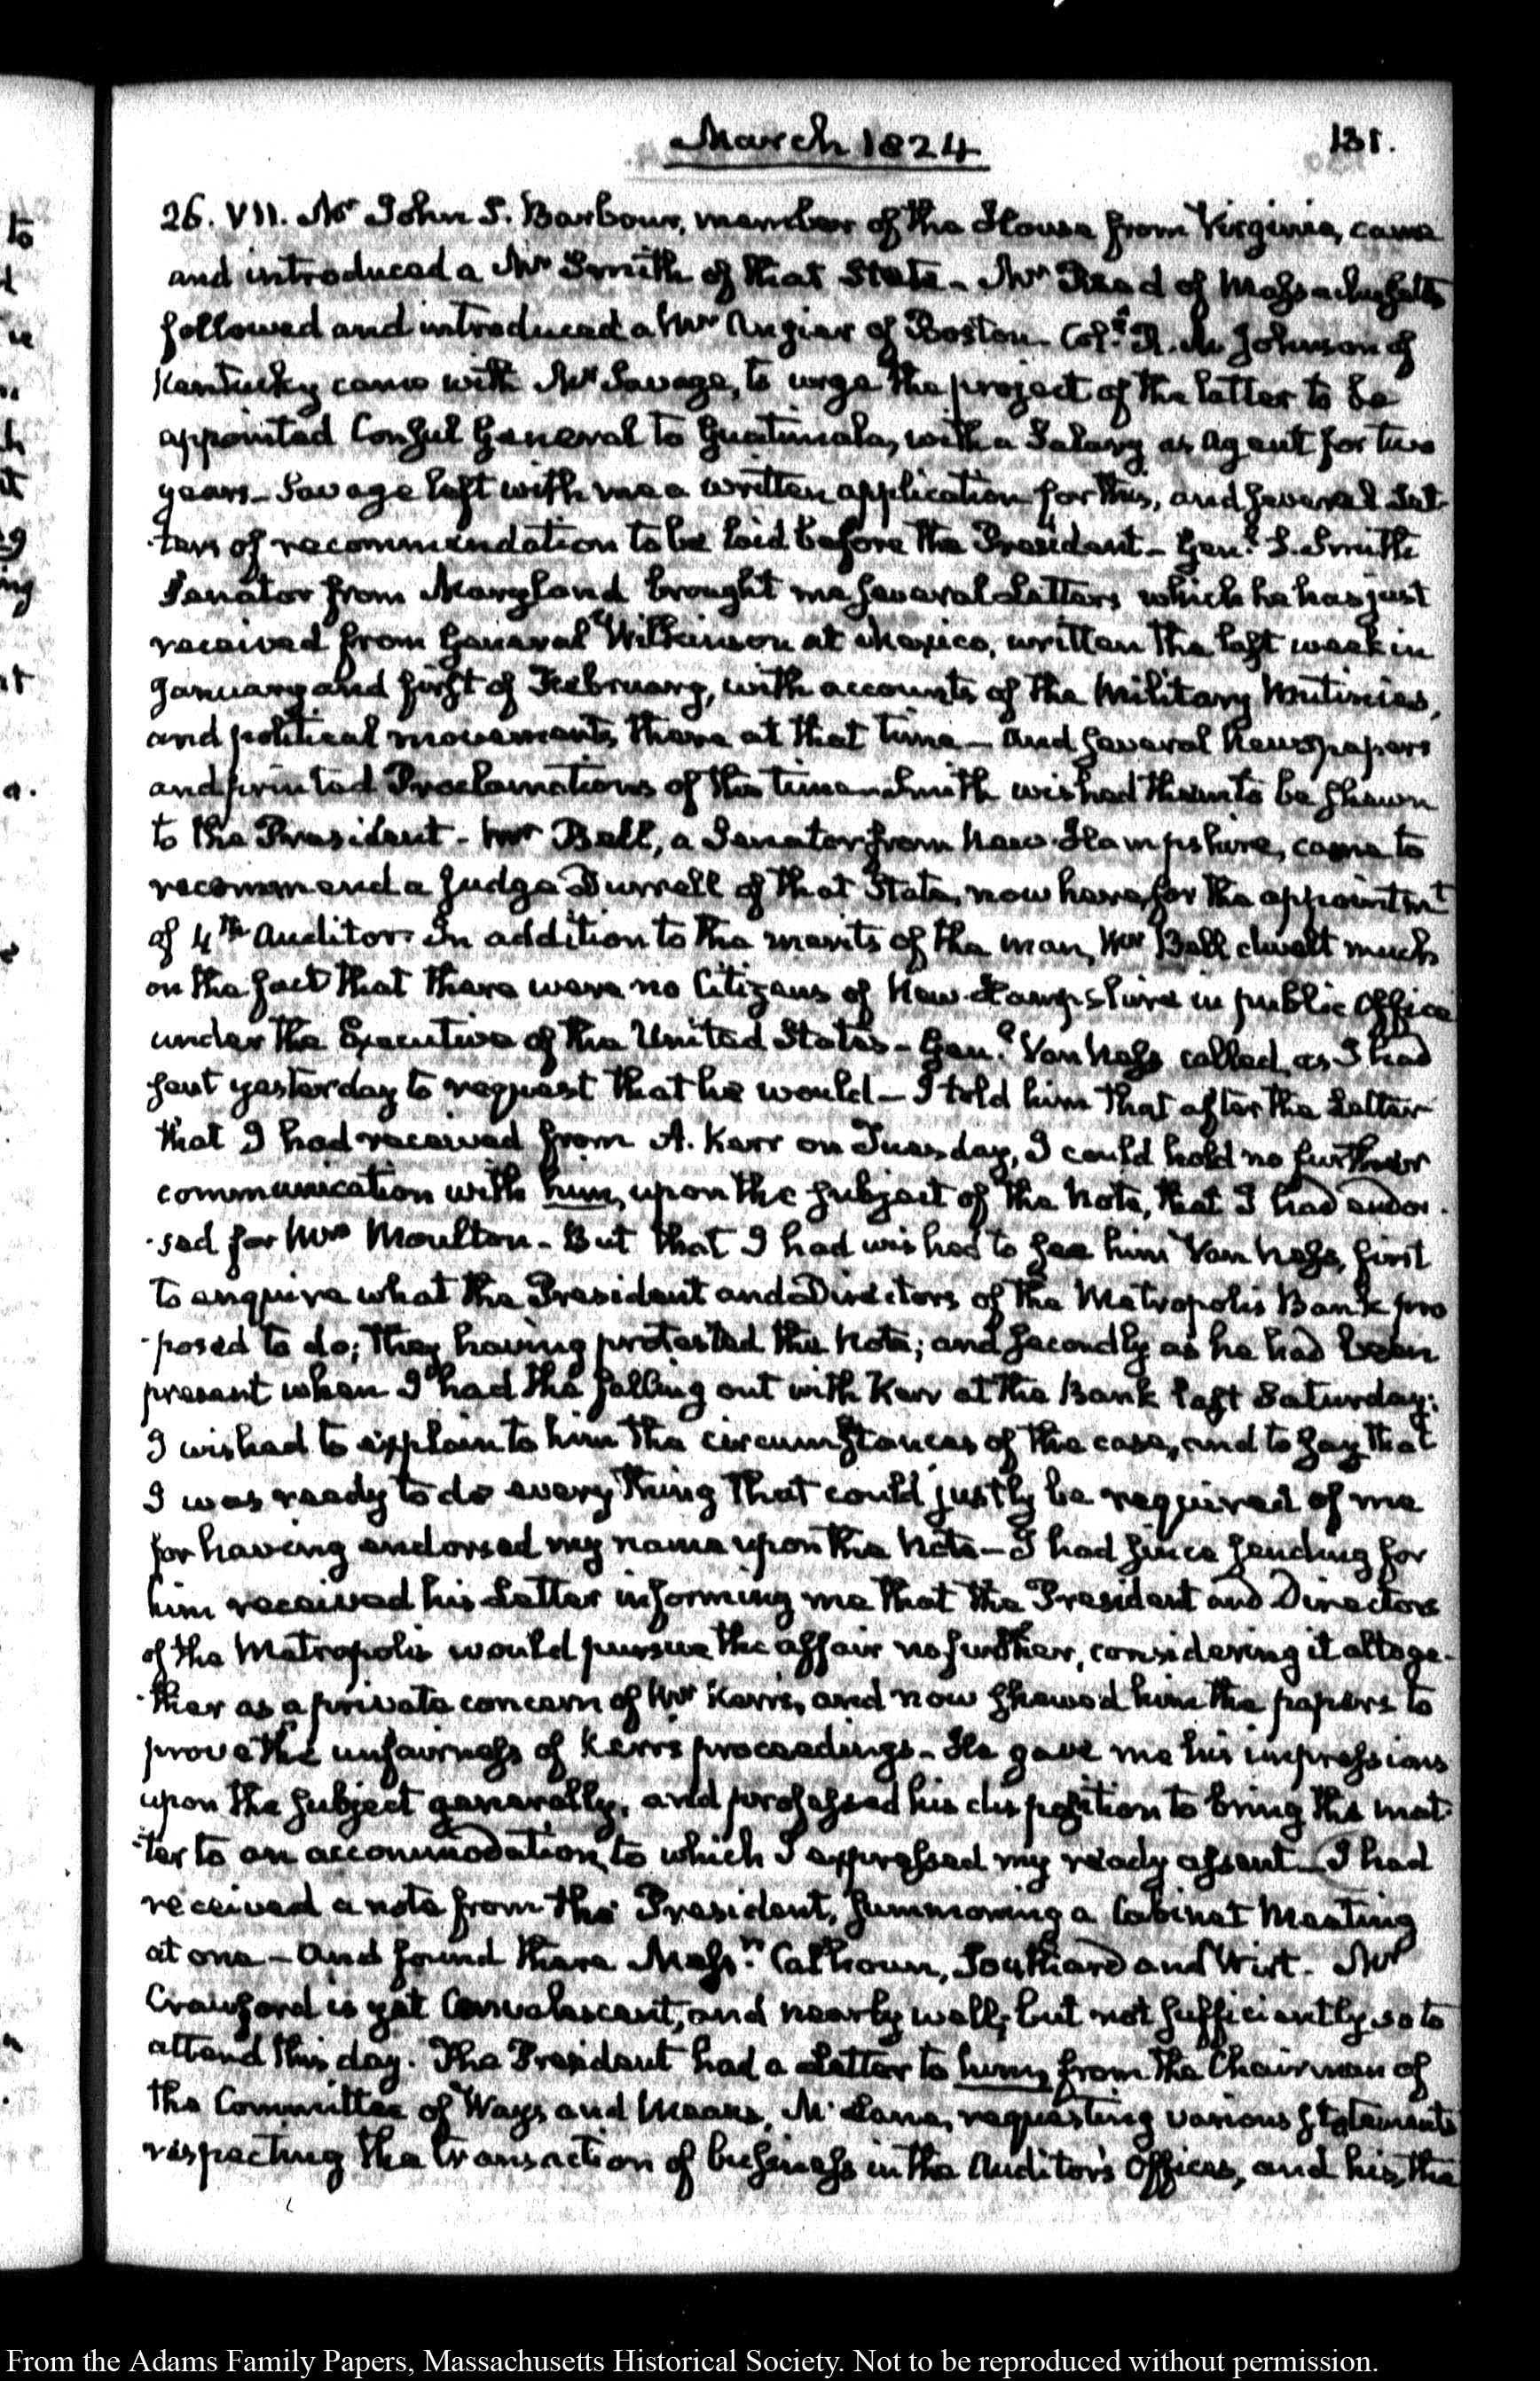 March 1824
131.
26. VII. Mr John S. Barbour, member of the House from Virginia, came
and introduced a Mr Smith of that State - Mr Read of Massachusetts
followed and introduced a Mr Angier of Boston. Coll. R. M. Johnson of
Kentucky came with Mr Savage, to urge the project of the latter to be
appointed Consul General to Guatimala, with a Salary as Agent for two
years - Savage left with me a written application for this, and several Let-
-ters of recommendation to be laid before the President - Genl. S. Smith
Senator from Maryland brought me several Letters which he has just
received from General Wilkinson at Mexico, written the last week in
January and first of February, with accounts of the Military Mutinies,
and political movements there at that time - And several Newspapers
and printed Proclamations of the time - Smith wished them to be shewn
to the President - Mr Bell, a Senator from New-Hampshire, came to
recommend a Judge Durrell of that State, now here, for the appointmt
of 4th Auditor. In addition to the merits of the man, Mr Bell dwelt much
on the fact that there were no Citizens of New-Hampshire in public Office
under the Executive of the United States - Genl. Van Ness called, as I had
sent yesterday to request that he would - I told him that after the Letter
that I had received from A. Kerr on Tuesday, I could hold no further
communication with him, upon the subject of the Note, that I had endor-
-sed for Mrs Moulton - But that I had wished to see him Van Ness, first
to enquire what the President and Directors of the Metropolis Bank pro
-posed to do; they having protested the Note; and secondly as he had been
present when I had the falling out with Kerr at the Bank last Saturday;
I wished to explain to him the circumstances of the case, and to say that
I was ready to do every thing that could justly be required of me
for having endorsed my name upon the Note - I had since sending for
him received his Letter informing me that the President and Directors
of the Metropolis would pursue the affair no further, considering it altoge-
-ther as a private concern of Mr Kerr's, and now shewed him the papers to
prove the unfairness of Kerr's proceedings - He gave me his impressions
upon the subject generally, and professed his disposition to bring the mat-
-ter to an accommodation, to which I expressed my ready assent - I had
received a note from the President, summoning a Cabinet Meeting
at one - And found there Messrs. Calhoun, Southard and Wirt. Mr
Crawford is yet Convalescent, and nearly well; but not sufficiently so to
attend this day. The President had a Letter to him, from the Chairman of
the Committee of Ways and Means, McLane, requesting various statements
respecting the transaction of business in the Auditor's Offices, and his, the
From the Adams Family Papers, Massachusetts Historical Society. Not to be reproduced without permission.